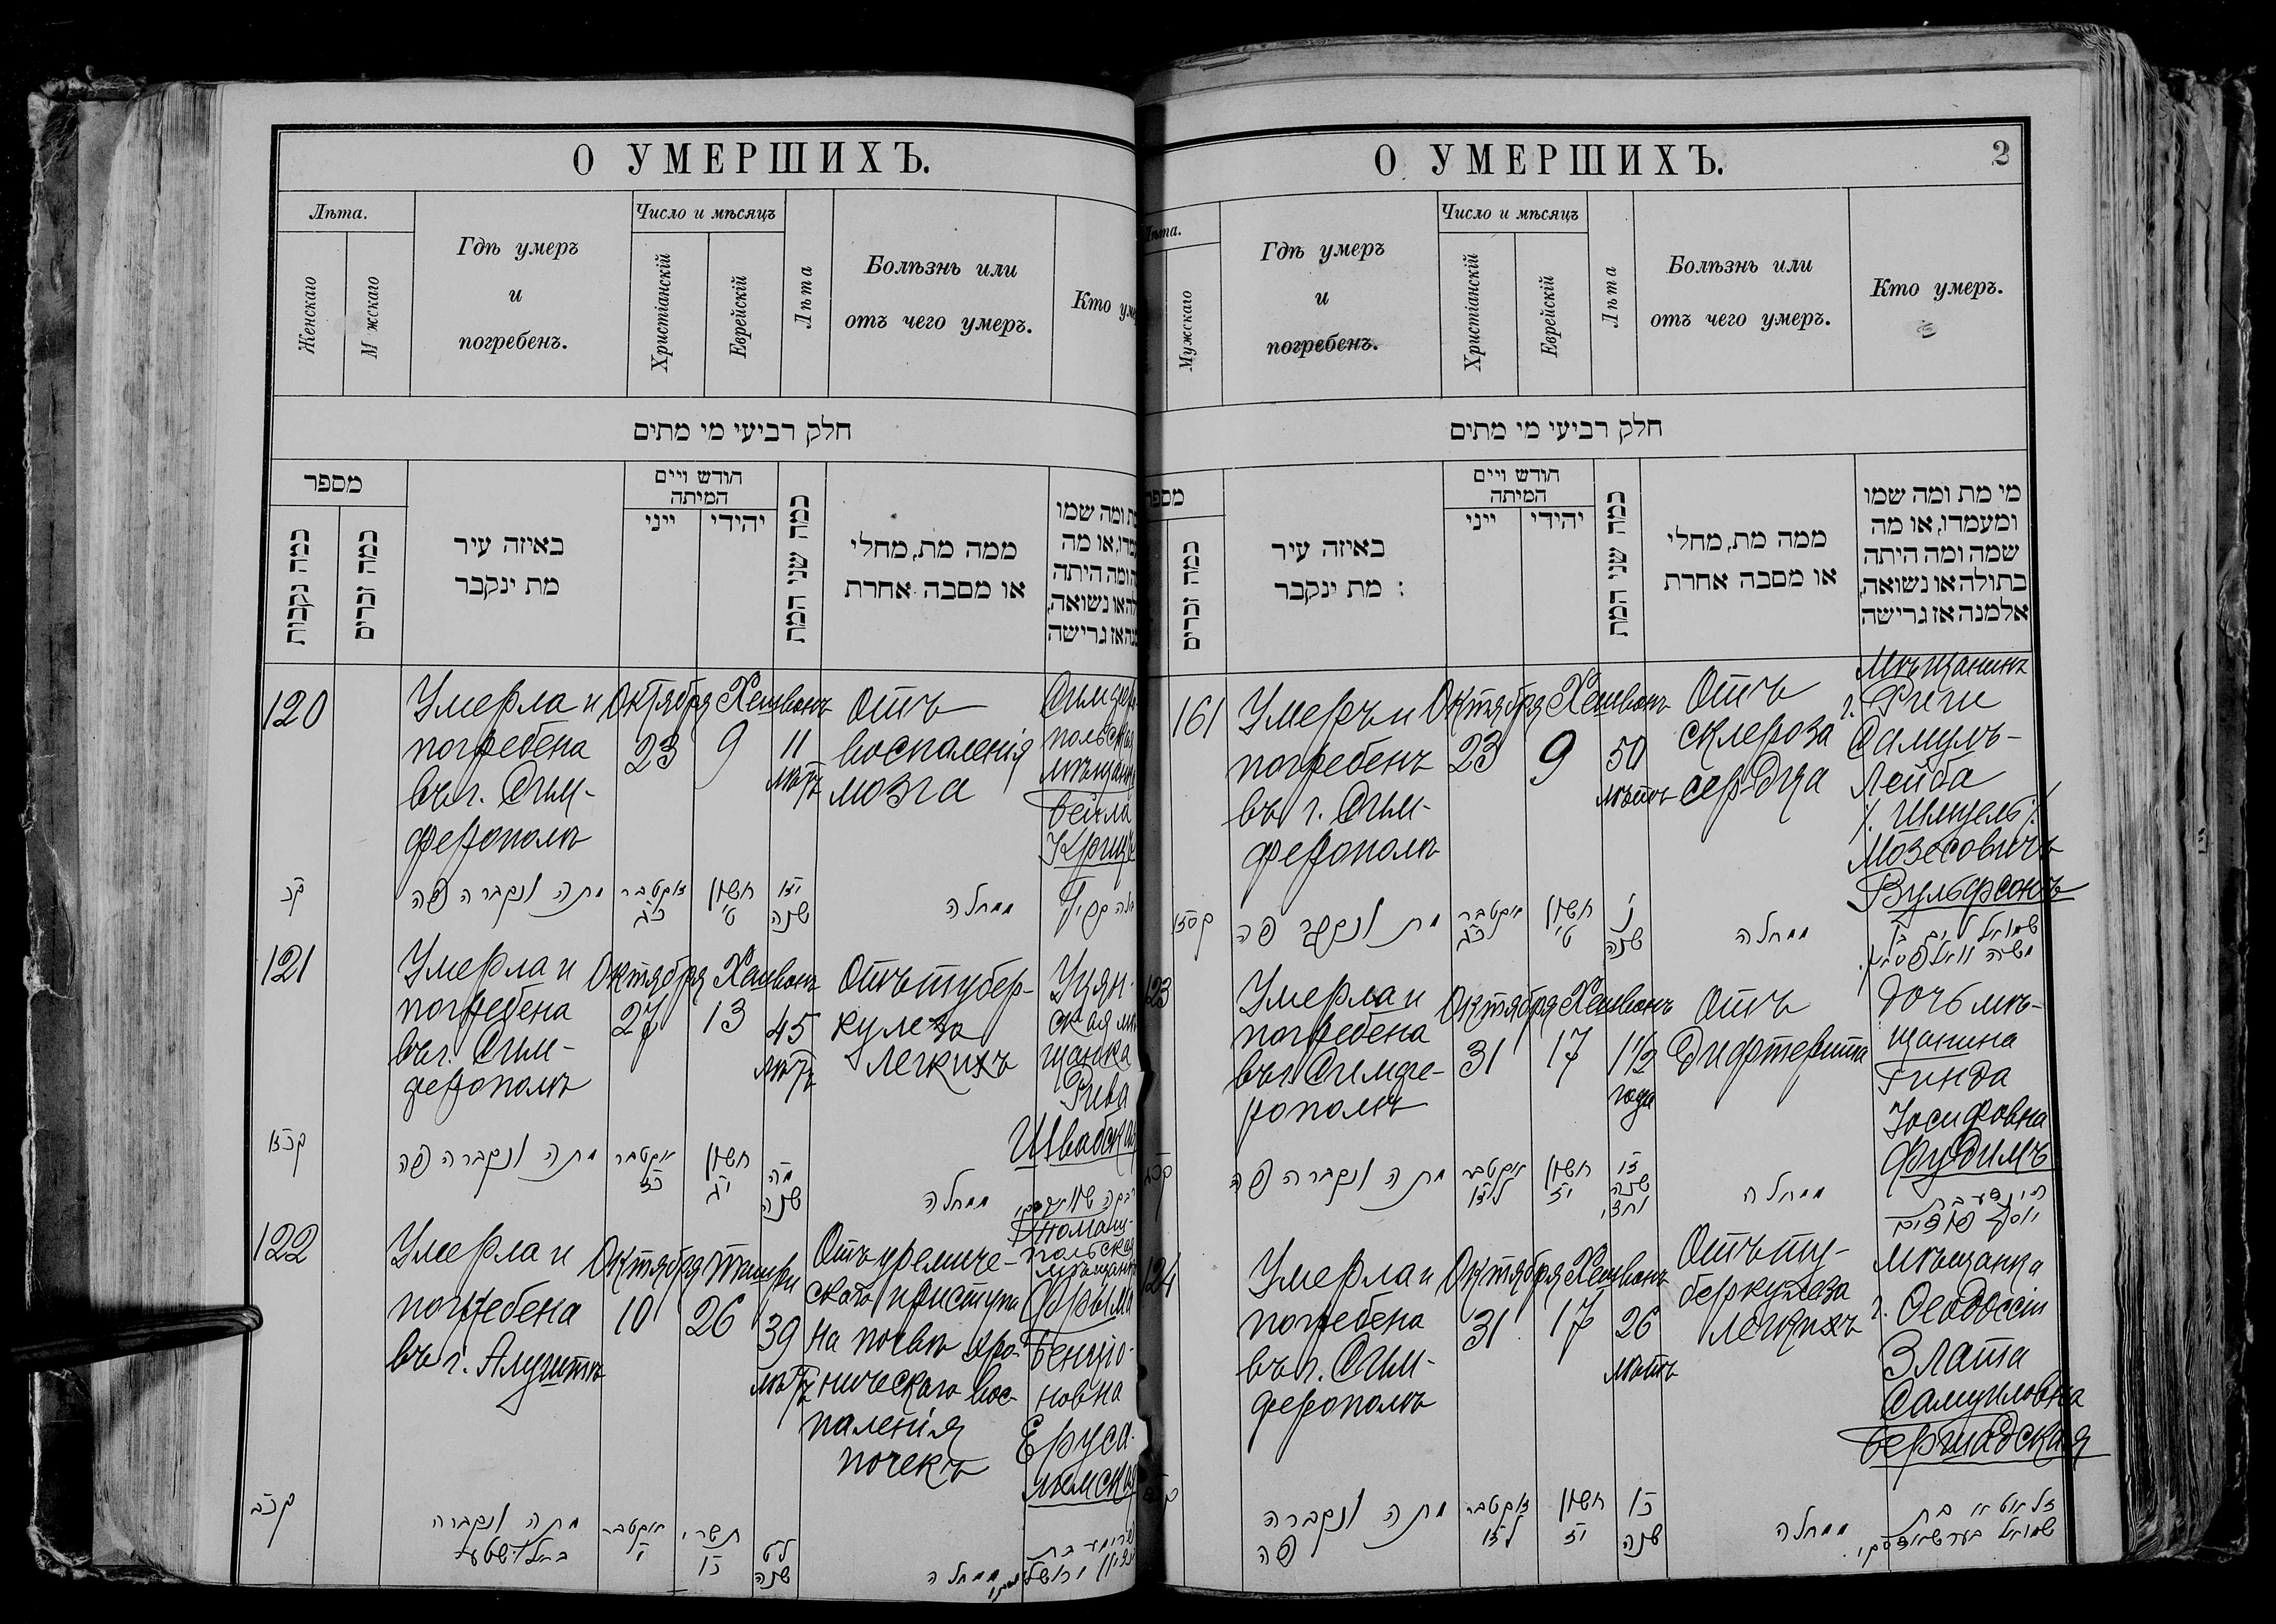 О УМЕРШИХЪ.
Лѣта.
Женскаго
М жскаго
Гдѣ умеръ
и
погребенъ.
Число и мѣсяцъ
Христіанскій
Еврейскій
Лѣта
Болѣзнь или
отъ чего умеръ.
Кто уме
חלק רביעי מי מתים
מספר
כמה נקבות
כמה זכרים
באיזה עיר
מת ינקבר
חודש ויים
המיתה
ייני
יהודי
כמה שני המת
ממה מת, מחלי
או מסבה אחרת
ת ומה שמו
מדו, או מה
ה ומה היתה
לה או נשואה,
מנה אז גרישה
120
Умерла и
погребена
въ г. Сим-
ферополѣ
Октября
23
Хешвонъ
9
11
лѣтъ
Отъ
воспаленія
мозга
Симфер
польская
мѣщанк
Бейла
קכ
מתה ונקברה פה
אקטבר
כג
חשון
ט׳
יא
שנה
מחלה
121
Умерла и
погребена
въ г. Сим-
ферополѣ
Октября
27
Хешвонъ
13
45
лѣтъ
Отъ тубер-
кулеза
легкихъ
ская мѣ
щанка
Рива
Швабская
קכא
מתה ונקברה פה
אקטבר
כז
חשון
יג
מה
שנה
מחלה
122
Умерла и
погребена
въ г. Алуштѣ
Октября
10
Тишри
26
39
лѣтъ
Отъ уремиче-
скаго приступа
на почвѣ хро-
ническаго вос-
паленія
почекъ
польская
мѣщанка
Фрыма
Бенціо-
новна
Еруса-
лимская
קכב
מתה ונקברה
אקטבר
י
תשרי
כו
לט
שנה
מחלה
О УМЕРШИХЪ.
2
Лѣта.
Мужскаго
Гдѣ умеръ
и
погребенъ.
Число и мѣсяцъ
Христіанскій
Еврейскій
Лѣта
Болѣзнь или
отъ чего умеръ.
Кто умеръ.
חלק רביעי מי מתים
מספר
כמה זכרים
באיזה עיר
מת ינקבר :
חודש ויים
המיתה
ייני
יהודי
כמה שני המת
ממה מת, מחלי
או מסבה אחרת
מי מת ומה שמו
ומעמדו, או מה
שמה ומה היתה
בתולה או נשואה,
אלמנה אז גרישה
161
Умеръ и
погребенъ
въ г. Сим-
ферополѣ
Октября
23
Хешвонъ
9
50
лѣтъ
Отъ
склероза
сердца
Мѣщанинъ
г. Риги
Самуилъ-
Лейба
/. Шмуель /.
Мозесовичъ
Вульфсонъ
קסא
מת ונקבר פה
אקטבר
כג
חשון
ט׳
נ
שנה
מחלה
123
Умерла и
погребена
въ г. Симфе-
рополѣ
Октября
31
Хешвонъ
17
1 1/2
года
Отъ
дифтерита
дочь мѣ-
щанина
Гинда
Іосифовна
Фудимъ
קכג
מתה ונקברה פה
אקטבר
לא
חשון
יז
א
שנה
וחצי
מחלה
הינדע בת
יוסף פודים
124
Умерла и
погребена
въ г. Сим-
ферополѣ
Октября
31
Хешвонъ
17
26
лѣтъ
Отъ ту-
беркулеза
легкихъ
Мѣщанка
г. Ѳеодосіи
Злата
Самуиловна
Бершадская
קכד
מתה ונקברה
פה
אקטבר
לא
חשון
יז
כו
שנה
מחלה
זלאטא בת
שמואל בערשאדסקי.